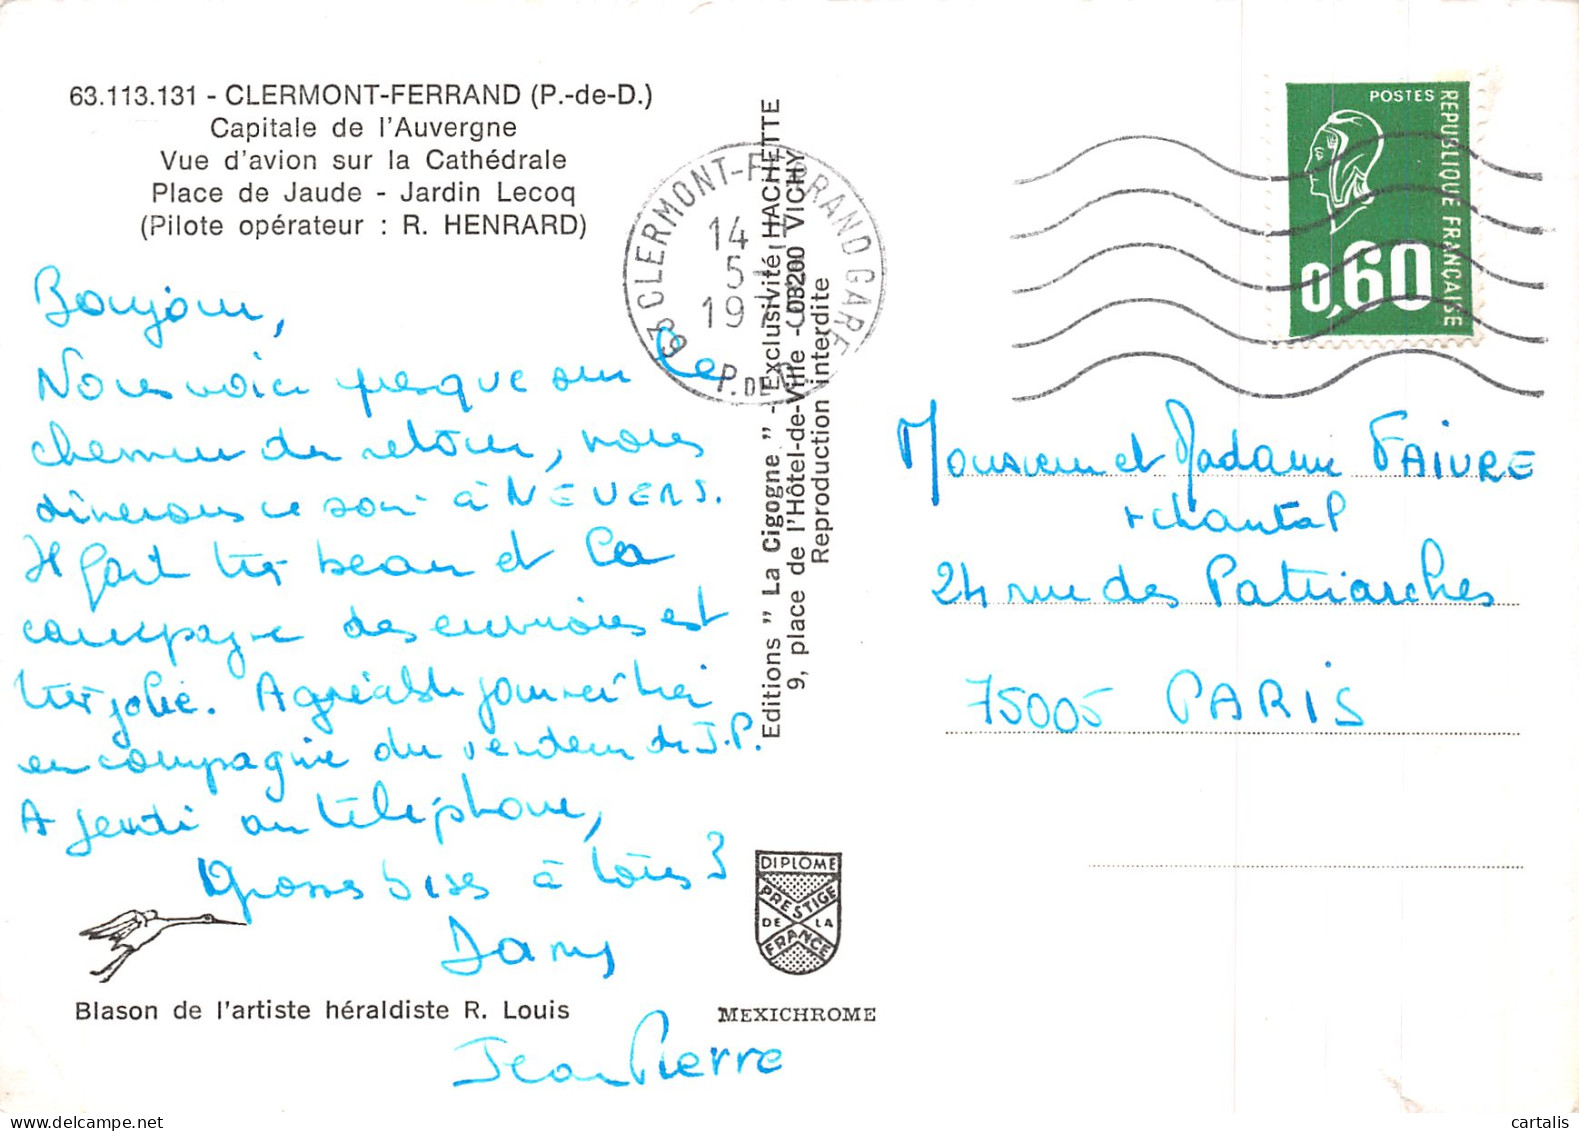 63.113.131 - CLERMONT-FERRAND (P.-de-D.)
Capitale de l'Auvergne
Vue d'avion sur la Cathédrale
Place de Jaude - Jardin Lecoq
(Pilote opérateur : R. HENRARD)
Bonjour,
Nous voici presque sur le
chemin du retour, nous
dînerons ce soir à NEVERS.
Il fait très beau et la
campagne des environs est
très jolie. Agréable journée hier
en compagnie du vendeur de J.P.
A jeudi au téléphone,
Grosses bises à tous 3
Dany
Jean Pierre
Blason de l'artiste héraldiste R. Louis
Editions " La Cigogne " - Exclusivité HACHETTE
9, place de l'Hôtel-de-Ville - 03200 VICHY
Reproduction interdite
DIPLOME
PRESTIGE
DE LA
FRANCE
MEXICHROME
63 CLERMONT-FERRAND GARE
14
5
197
P. DE D.
POSTES
REPUBLIQUE FRANÇAISE
0,60
Monsieur et Madame FAIVRE
+ Chantal
24 rue des Patriarches
75005 PARIS
cartalis
delcampe.net